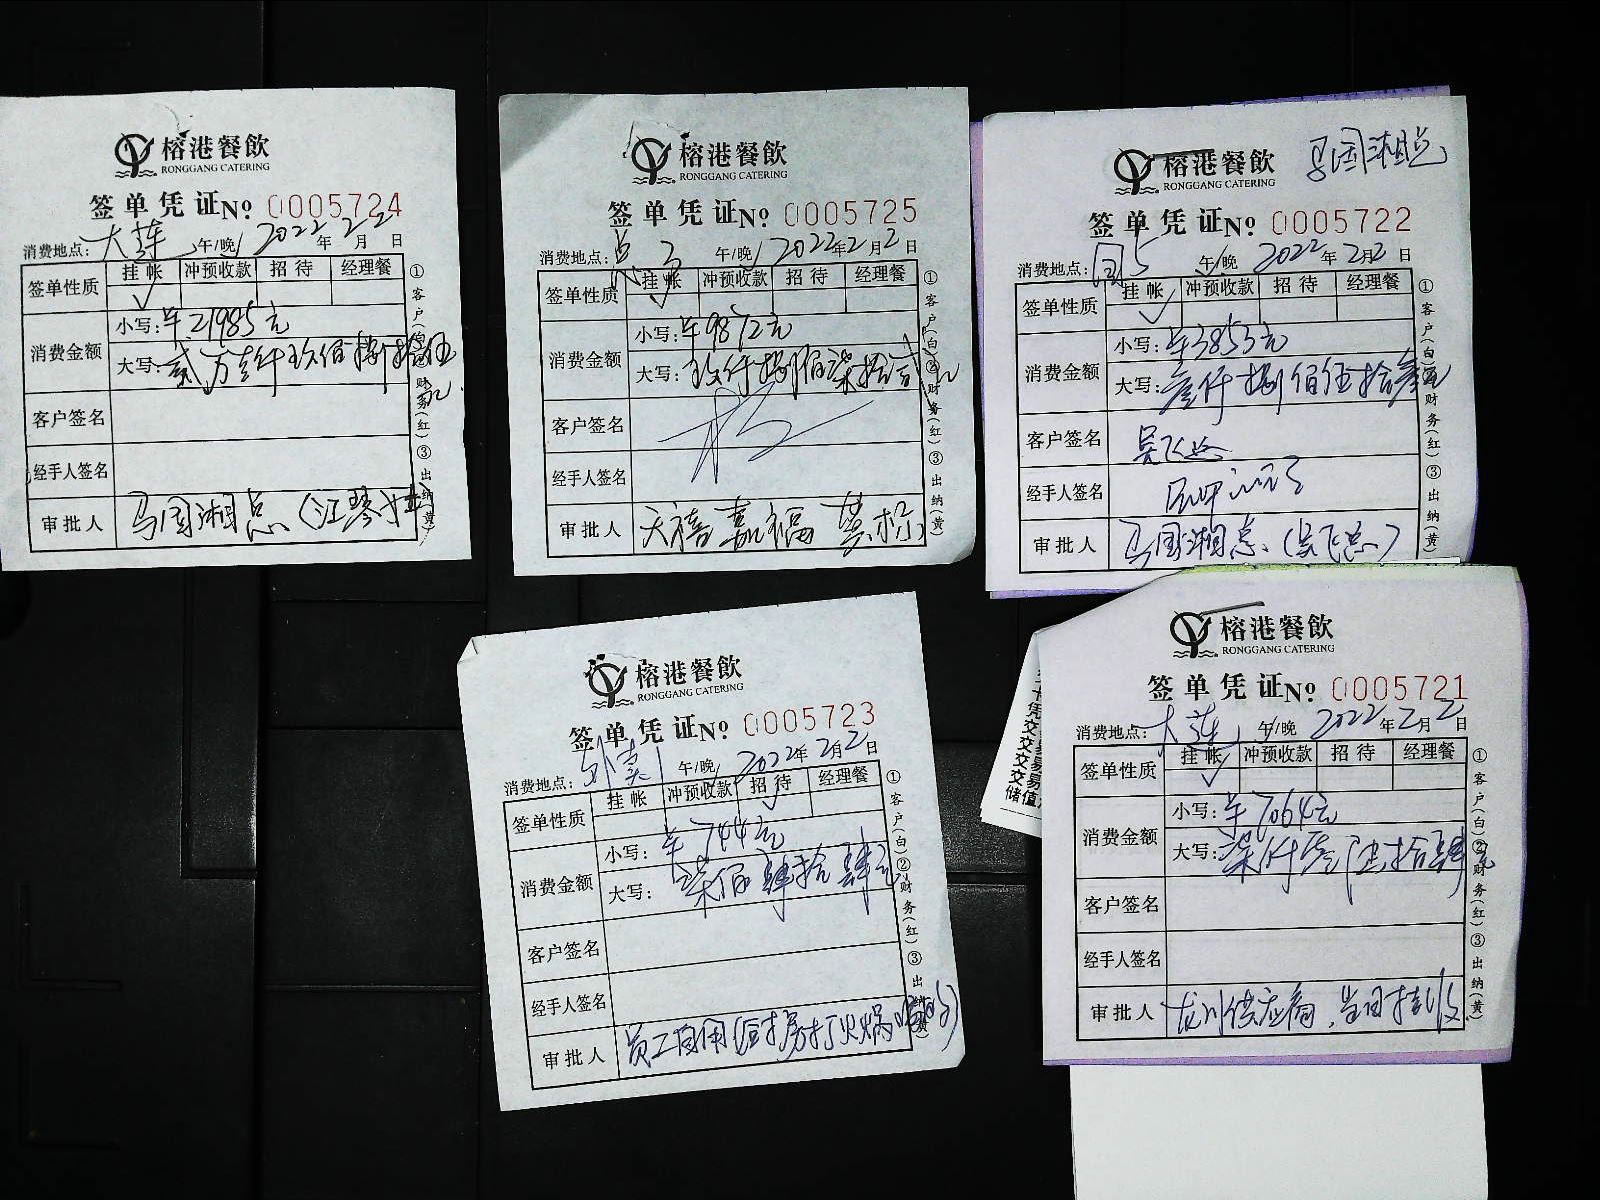 榕港餐飲
RONGGANG CATERING
签单凭证No 0005724
消费地点: 大莲 午/晚 2022年2月2日
签单性质 挂帐 冲预收款 招待 经理餐
消费金额 小写: ¥21985元
大写: 贰万壹仟玖佰捌拾伍元
客户签名
经手人签名
审批人 马国湘总(江琴
①客户(白)②财务(红)③出纳(黄)
榕港餐飲
RONGGANG CATERING
签单凭证No 0005725
消费地点: 午/晚 2022年2月2日
签单性质 挂帐 冲预收款 招待 经理餐
消费金额 小写: ¥9872元
大写: 玖仟捌佰柒拾贰元
客户签名
经手人签名
审批人 天禧嘉福
①客户(白)②财务(红)③出纳(黄)
马国湘总
榕港餐飲
RONGGANG CATERING
签单凭证No 0005722
消费地点: 国5 午/晚 2022年2月2日
签单性质 挂帐 冲预收款 招待 经理餐
消费金额 小写: ¥3853元
大写: 叁仟捌佰伍拾叁元
客户签名 吴飞
经手人签名
审批人 马国湘总(吴飞总)
①客户(白)②财务(红)③出纳(黄)
榕港餐飲
RONGGANG CATERING
签单凭证No 0005723
消费地点: 外卖 午/晚 2022年2月2日
签单性质 挂帐 冲预收款 招待 经理餐
消费金额 小写: ¥744元
大写: 柒佰肆拾肆元
客户签名
经手人签名
审批人 员工自用(包房打火锅
①客户(白)②财务(红)③出纳(黄)
榕港餐飲
RONGGANG CATERING
签单凭证No 0005721
消费地点: 大莲 午/晚 2022年2月2日
签单性质 挂帐 冲预收款 招待 经理餐
消费金额 小写: ¥7064元
大写: 柒仟零陆拾肆元
客户签名
经手人签名
审批人 龙川供应商,
①客户(白)②财务(红)③出纳(黄)